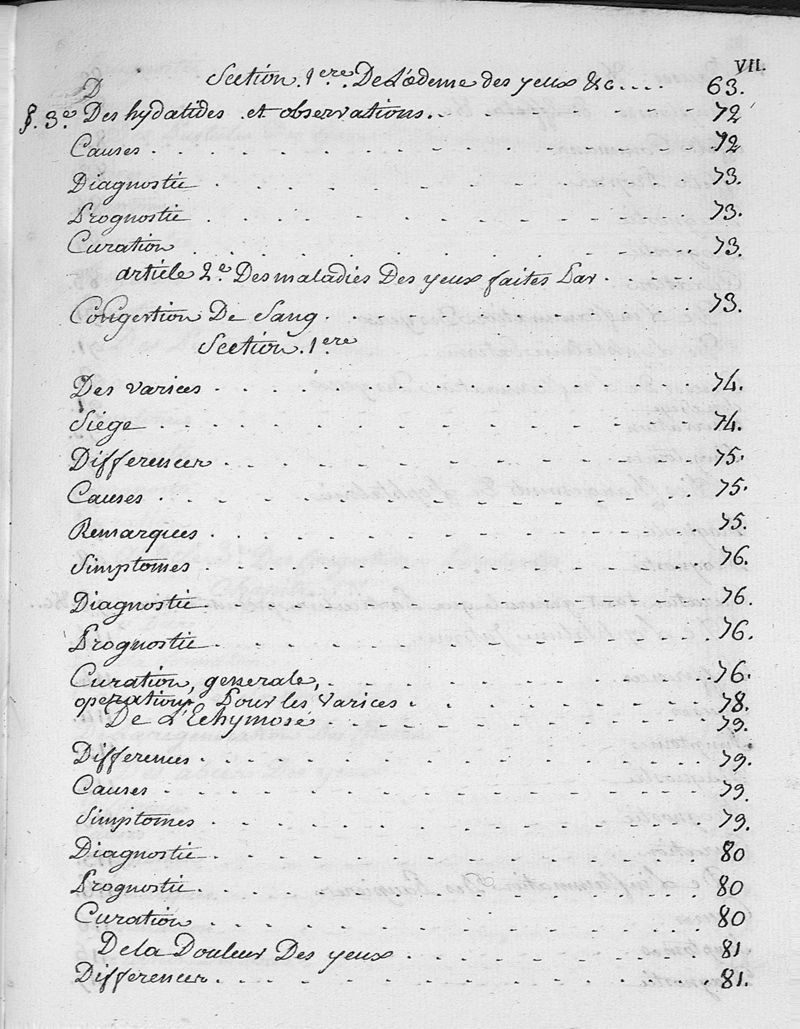 VII.
Section. 1ere. De L'œdeme des yeux &c..... 63.
D
§. 3e. Des hydatides. et observations. 72
Causes. 72
Diagnostic. 73.
Prognostic. 73.
Curation 73.
article 2e. Des maladies Des yeux faites Par
Congestion De Sang. 73.
Section. 1ere
Des varices. 74.
Siége 74.
Differences. 75.
Causes. 75.
Remarques. 75.
Simptomes 76.
Diagnostic. 76.
Prognostic. 76.
Curation, generale, 76.
operations Pour les Varices. 78.
De L'Echymose. 79.
Differences. 79.
Causes. 79.
Simptomes. 79.
Diagnostic. 80
Prognostic. 80
Curation. 80
De la Douleur Des yeux. 81
Differences. 81.